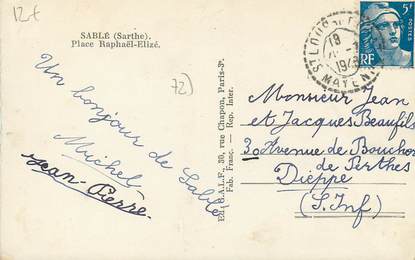 12€
SABLÉ (Sarthe).
Place Raphaël-Elizé.
72)
Un bonjour de Sablé
Michel
Jean-Pierre.
30, rue Chapon, Paris-3e
Fab. Franç. — Rep. Inter.
5F
POSTES
RF
18
MAYENNE
Monsieur Jean
et Jacques Beaufils
30 Avenue de Boucher
de Perthes
Dieppe
(S. Inf)